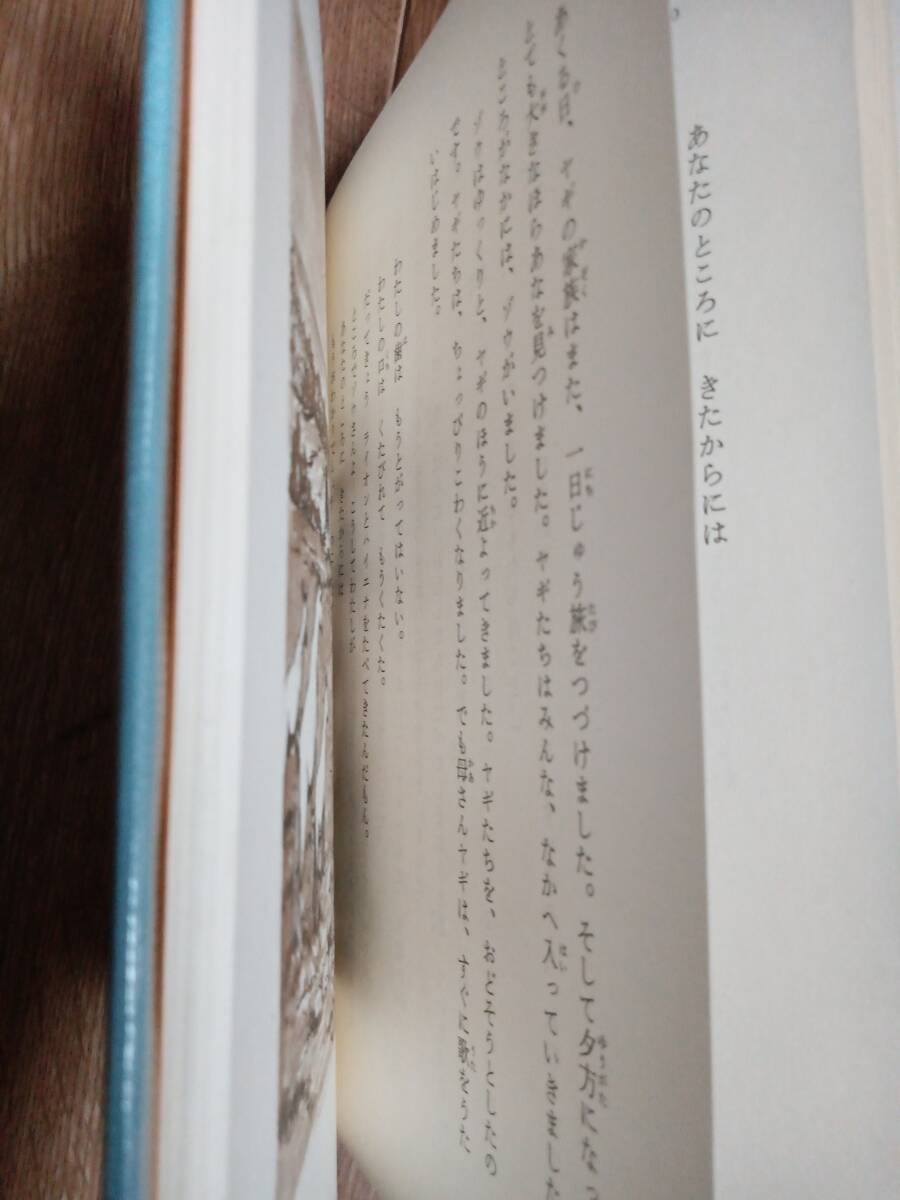 あなたのところに　きたからには
あくる日、ヤギの家族はまた、一日じゅう旅をつづけました。そして夕方になっ
とても大きなほらあなを見つけました。ヤギたちはみんな、なかへ入っていきました
ところがなかには、ゾウがいました。
ゾウはゆっくりと、ヤギのほうに近よってきました。ヤギたちを、おどそうとしたの
です。ヤギたちは、ちょっぴりこわくなりました。でも母さんヤギは、すぐに歌をうた
いはじめました。
わたしの歯は　もうとがってはいない。
わたしの口は　くたびれて　もうくたくた。
だってきょう　ライオンとハイエナをたべてきたんだもん。
ところでゾウさんよ　こうしてわたしが
あなたのところに　きたからには